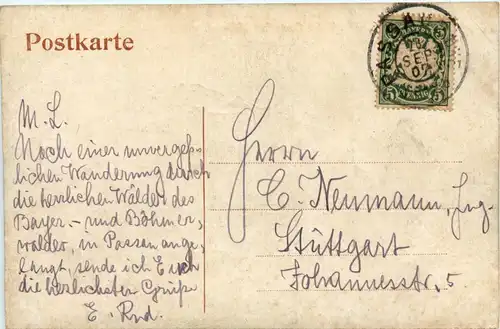 Postkarte
PASSAU
SEP
07
5 5
M. L.
Nach einer unvergeß-
lichen Wanderung durch
die herrlichen Wälder des
Bayer.- und Böhmer,
waldes, in Passau ange,
langt, sende ich Euch
die herzlichsten Grüße
E.
Herrn
C. Neumann, Ing.
Stuttgart
Johannesstr. 5